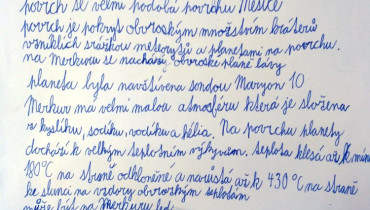 povrch se velmi podobá povrchu Měsíce
povrch je pokryt obrovským množstvím kráterů
vzniklích srážkou meteorytů a planetami na povrchu.
na Merkuru se nacházejí obrovské pláně lávy
planeta byla navštívena sondou Maryon 10
Merkur má velmi malou atmosféru která je složena
z kyslíku, sodíku, vodíku a hélia. Na povrchu planety
dochází k velkým teplotním výkyvům. teplota klesá až k mínus
180°C na straně odkloněné a narůstá až k 430°C na straně
ke slunci na vzdory obrovským teplotám
může být na Merkuru led